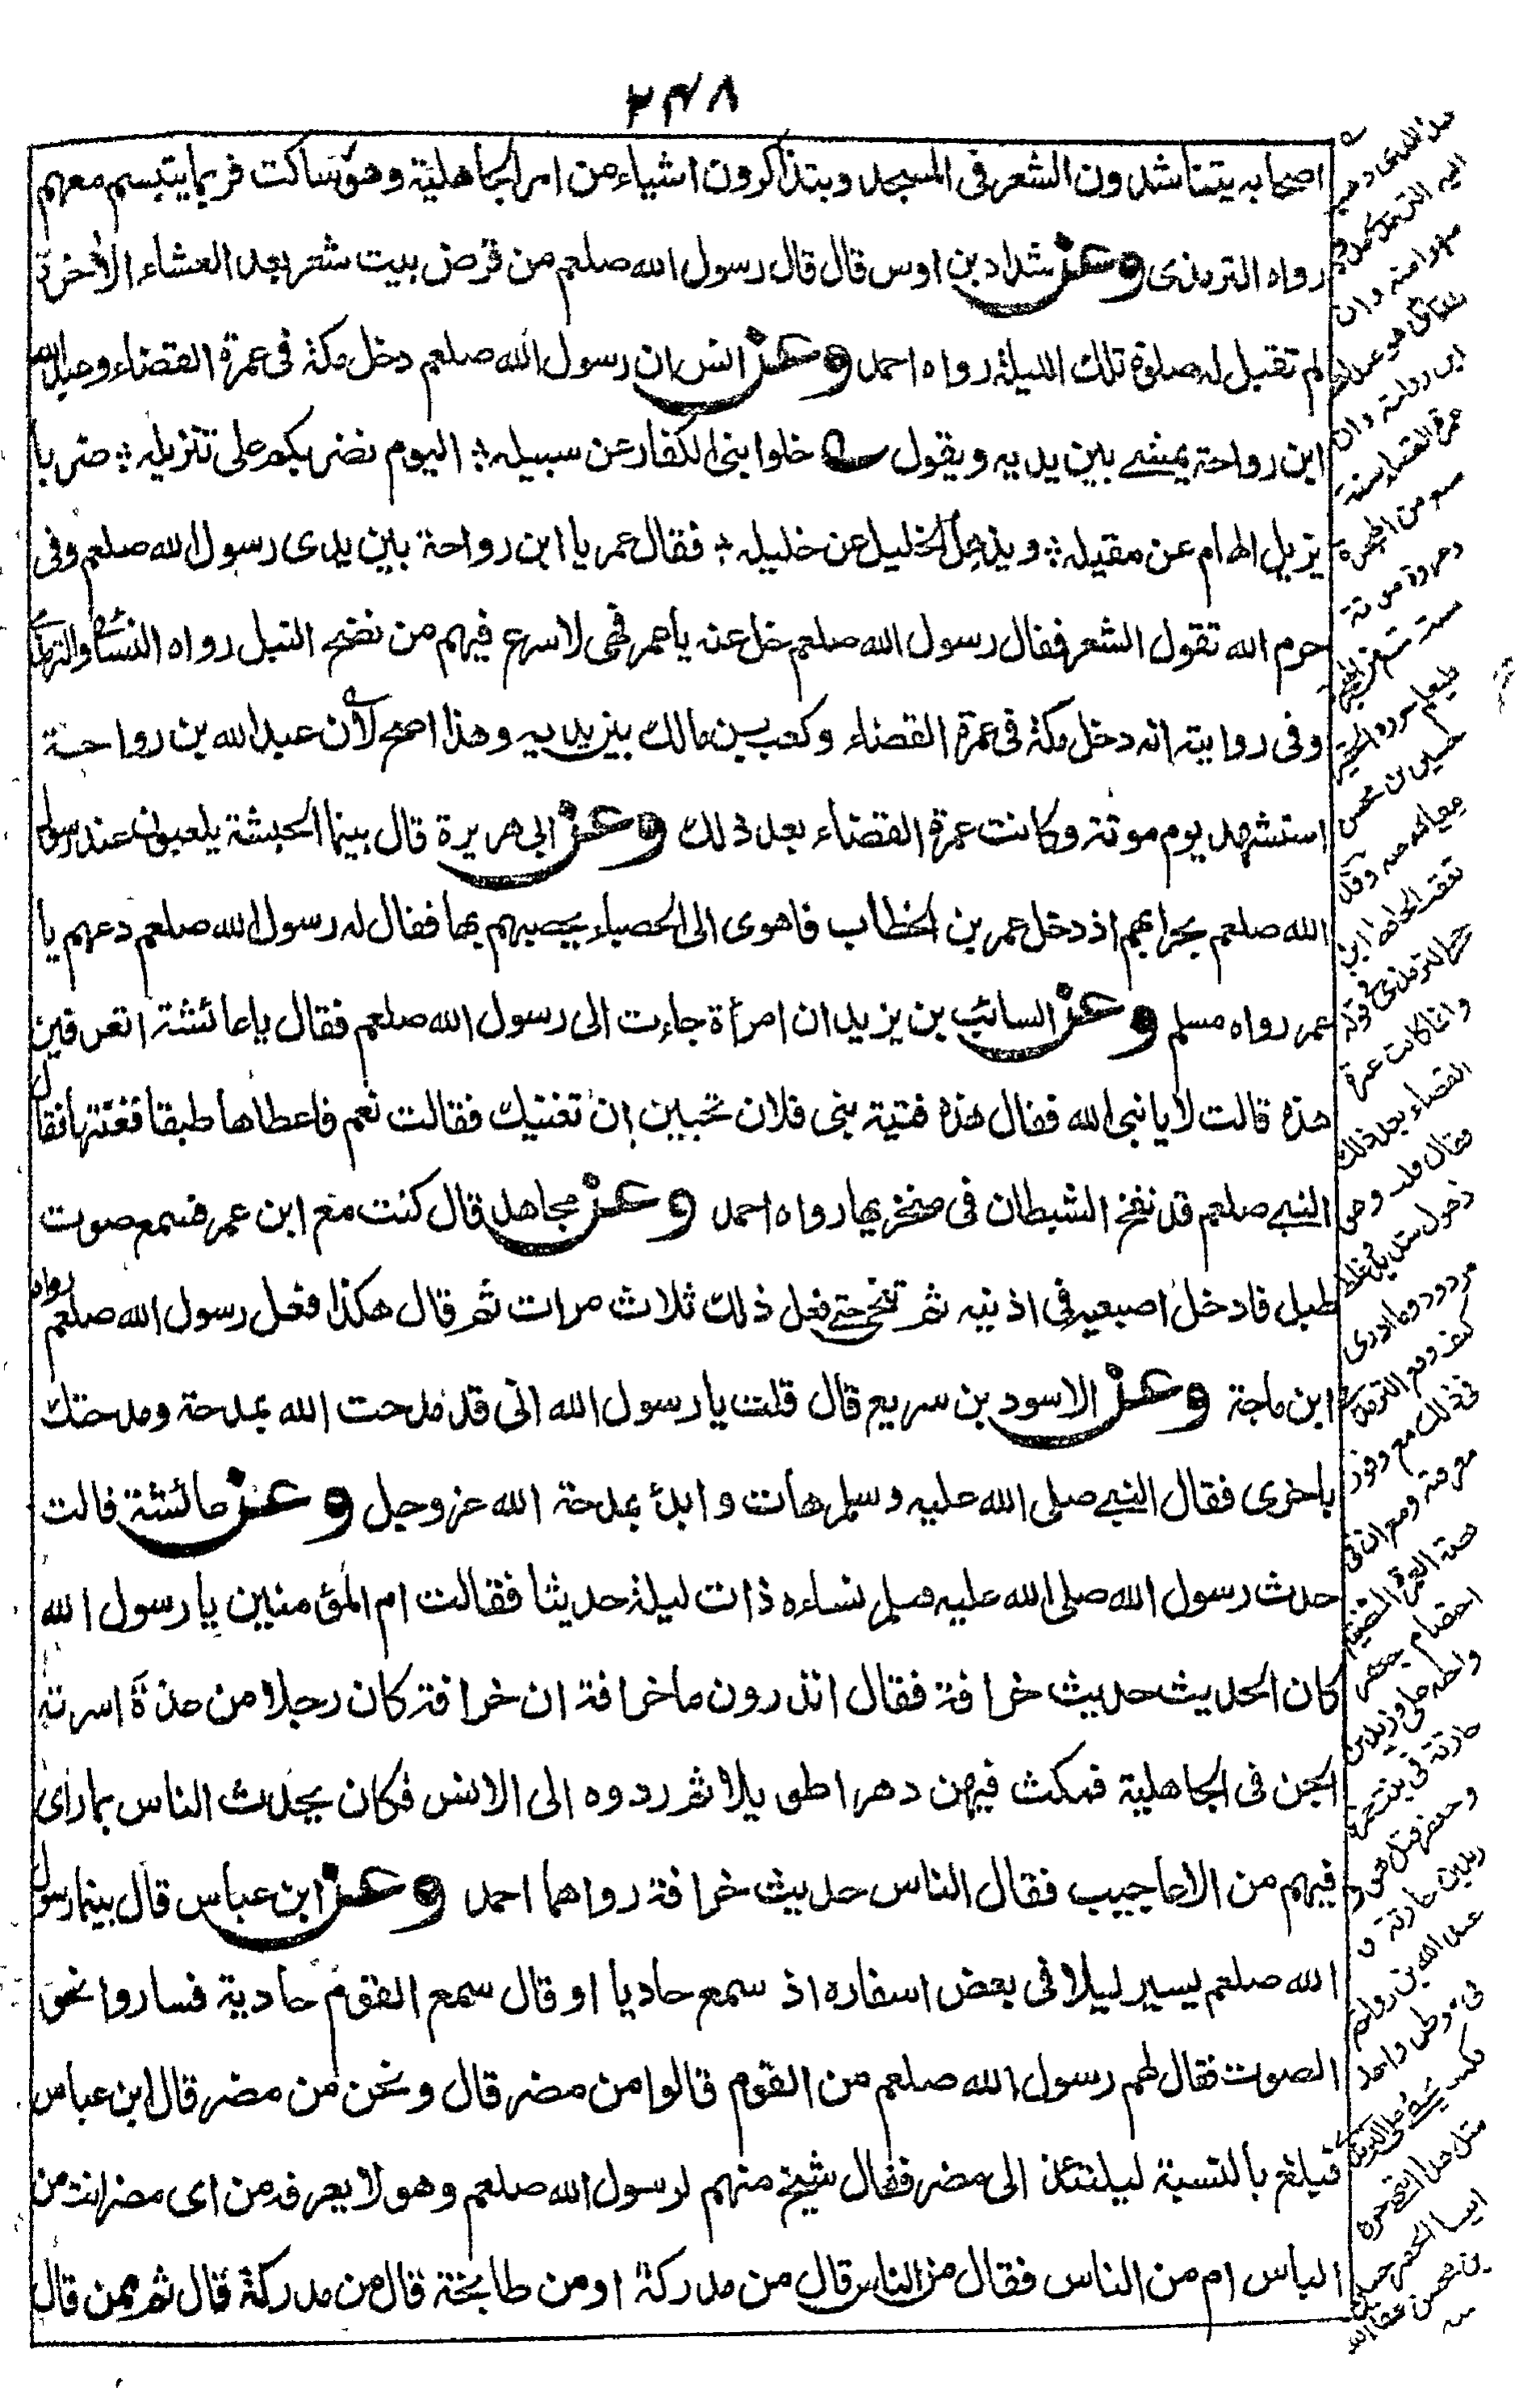 ٢٤٨
اصحابه يتناشدون الشعر فى المسجد ويتذاكرون اشياء من امر الجاهلية وهو ساكت فربما يتبسم معهم
رواه الترمذى وعن شداد بن اوس قال قال رسول الله صلعم من قرض بيت شعر بعد العشاء الأخرة
لم تقبل له صلوة تلك الليلة رواه احمد وعن انس ان رسول الله صلعم دخل مكة فى عمرة القضاء وعبد الله
ابن رواحة يمشے بين يديه ويقول خلوا بنى الكفار عن سبيله اليوم نضربكم على تنزيله ضربا
يزيل الهام عن مقيله ويذهل الخليل عن خليله فقال عمر يا ابن رواحة بين يدى رسول الله صلعم وفى
حرم الله تقول الشعر فقال رسول الله صلعم خل عنه يا عمر فهى لاسرع فيهم من نضح النبل رواه النسائى والترمذى
وفى رواية انه دخل مكة فى عمرة القضاء وكعب بن مالك بين يديه وهذا اصح لأن عبد الله بن رواحة
استشهد يوم موتة وكانت عمرة القضاء بعد ذلك وعن ابى هريرة قال بينما الحبشة يلعبون عند رسول
الله صلعم بحرابهم اذ دخل عمر بن الخطاب فاهوى الى الحصباء يحصبهم بها فقال له رسول الله صلعم دعهم يا
عمر رواه مسلم وعن السائب بن يزيد ان امرأة جاءت الى رسول الله صلعم فقال يا عائشة اتعرفين
هذه قالت لا يا نبى الله فقال هذه قينة بنى فلان تحبين ان تغنيك فقالت نعم فاعطاها طبقا فغنتها فقال
النبے صلعم قد نفخ الشيطان فى منخريها رواه احمد وعن مجاهد قال كنت مع ابن عمر فسمع صوت
طبل فادخل اصبعيه فى اذنيه ثم تنحى حتے فعل ذلك ثلاث مرات ثم قال هكذا فعل رسول الله صلعم رواه
ابن ماجة وعن الاسود بن سريع قال قلت يا رسول الله انى قد مدحت الله بمدحة ومدحتك
باخرى فقال النبے صلى الله عليه وسلم هات وابدأ بمدحة الله عز وجل وعن عائشة قالت
حدث رسول الله صلى الله عليه وسلم نساءه ذات ليلة حديثا فقالت ام المؤمنين يا رسول الله
كان الحديث حديث خرافة فقال اتدرون ما خرافة ان خرافة كان رجلا من عذرة اسرته
الجن فى الجاهلية فمكث فيهن دهرا طويلا ثم ردوه الى الانس فكان يحدث الناس بما رأى
فيهم من الاعاجيب فقال الناس حديث خرافة رواهما احمد وعن ابن عباس قال بينما رسول
الله صلعم يسير ليلا فى بعض اسفاره اذ سمع حاديا او قال سمع القوم حادية فساروا نحو
الصوت فقال لهم رسول الله صلعم من القوم قالوا من مضر قال ونحن من مضر قال ابن عباس
فبلغ بالنسبة ليلتئذ الى مضر فقال شيخ منهم لرسول الله صلعم وهو لا يعرفه من اى مضر انت من
الياس ام من الناس فقال من الناس قال من مدركة او من طابخة قال من مدركة قال ثم ممن قال
ابن رواحة وان
عمرة القضاء سنة
حسين بن محسن
وانما كانت عمرة
القضاء بعد ذلك
مردود وما ادرى
كيف وقع الترمذى
فى ذلك مع وفور
معرفته ومع ان فى
وجعفر قتل هو و
زيد بن حارثة و
عبد الله بن رواحة
فى موطن واحد